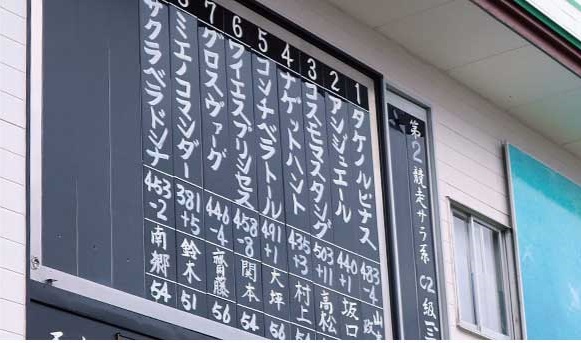 第2競走サラ系 C2級
1 タケノルビナス 483 -4 山
2 アンジュエール 440 +1 坂口
3 コスモマスタング 503 +11 高松
4 ナゲットハント 435 +3 村上 54
5 コンチベラトール 491 +1 大坪 56
6 ワイエスプリンセス 458 -8 関本 54
7 グロスヴァーグ 446 -4 齋藤 56
8 ミエノコマンダー 381 +5 鈴木 51
サクラベラドンナ 453 -2 南郷 54